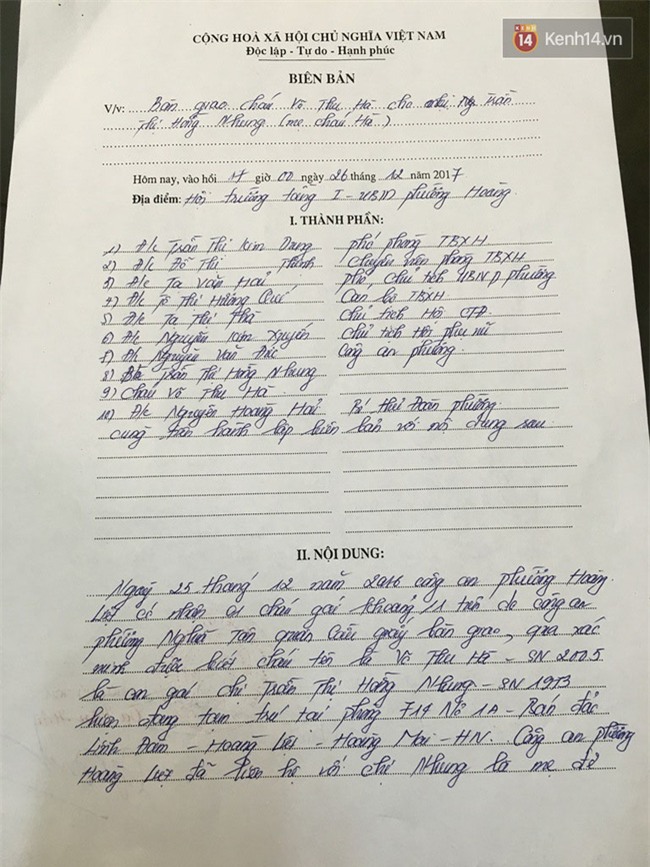 14 Kenh14.vn
CỘNG HOÀ XÃ HỘI CHỦ NGHĨA VIỆT NAM
Độc lập - Tự do - Hạnh phúc
BIÊN BẢN
V/v: Bàn giao cháu Võ Thu Hà cho Trần
Thị Hồng Nhung (mẹ cháu Hà)
Hôm nay, vào hồi 17 giờ 00 ngày 26 tháng 12 năm 2017
Địa điểm: Hội trường tầng I - UBND phường Hoàng.
I. THÀNH PHẦN:
1) Đ/c Trần Thị Kim Dung phó phòng TBXH
2) Đ/c Đỗ Thị Thịnh chuyên viên phòng TBXH
3) Đ/c Tạ Văn Hải phó chủ tịch UBND phường
4) Đ/c Thị Hương Cán bộ TBXH
5) Đ/c Tạ Thị chủ tịch Hội CTĐ
6) Đ/c Nguyễn Kim Xuyến chủ tịch Hội phụ nữ
7) Đ/c Nguyễn Văn Đức Công an phường
8) Trần Thị Hồng Nhung
9) Cháu Võ Thu Hà
10) Đ/c Nguyễn Hoàng Hải Bí thư Đoàn phường
cùng tiến hành lập biên bản với nội dung sau
II. NỘI DUNG:
Ngày 25 tháng 12 năm 2016 công an phường Hoàng
Liệt có nhận cháu gái khoảng 11 tuổi do công an
phường Nghĩa Tân quận Cầu giấy bàn giao, qua xác
minh được biết cháu tên là Võ Thu Hà - SN 2005
là con gái chị Trần Thị Hồng Nhung - SN 1973
hiện đang tạm trú tại phòng 714 Nơ 1A - Bán đảo
Linh Đàm - Hoàng Liệt - Hoàng Mai - HN. Công an phường
Hoàng Liệt đã liên hệ với chị Nhung là mẹ đẻ